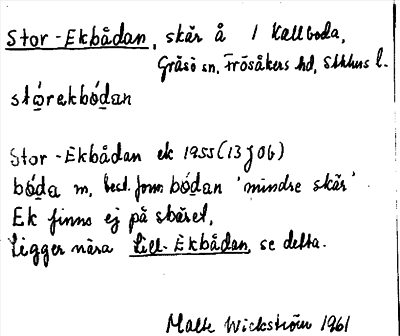 Stor-Ekbådan, skär å 1 Kallboda,
Gräsö sn, Frösåkers hd, Sthlms l.
stórekbódan
Stor-Ekbådan ek 1955 (13 J 0b)
bóda m, best. form bódan 'mindre skär'
Ek finns ej på skäret,
Ligger nära Lill-Ekbådan, se detta.
Malte Wickström 1961